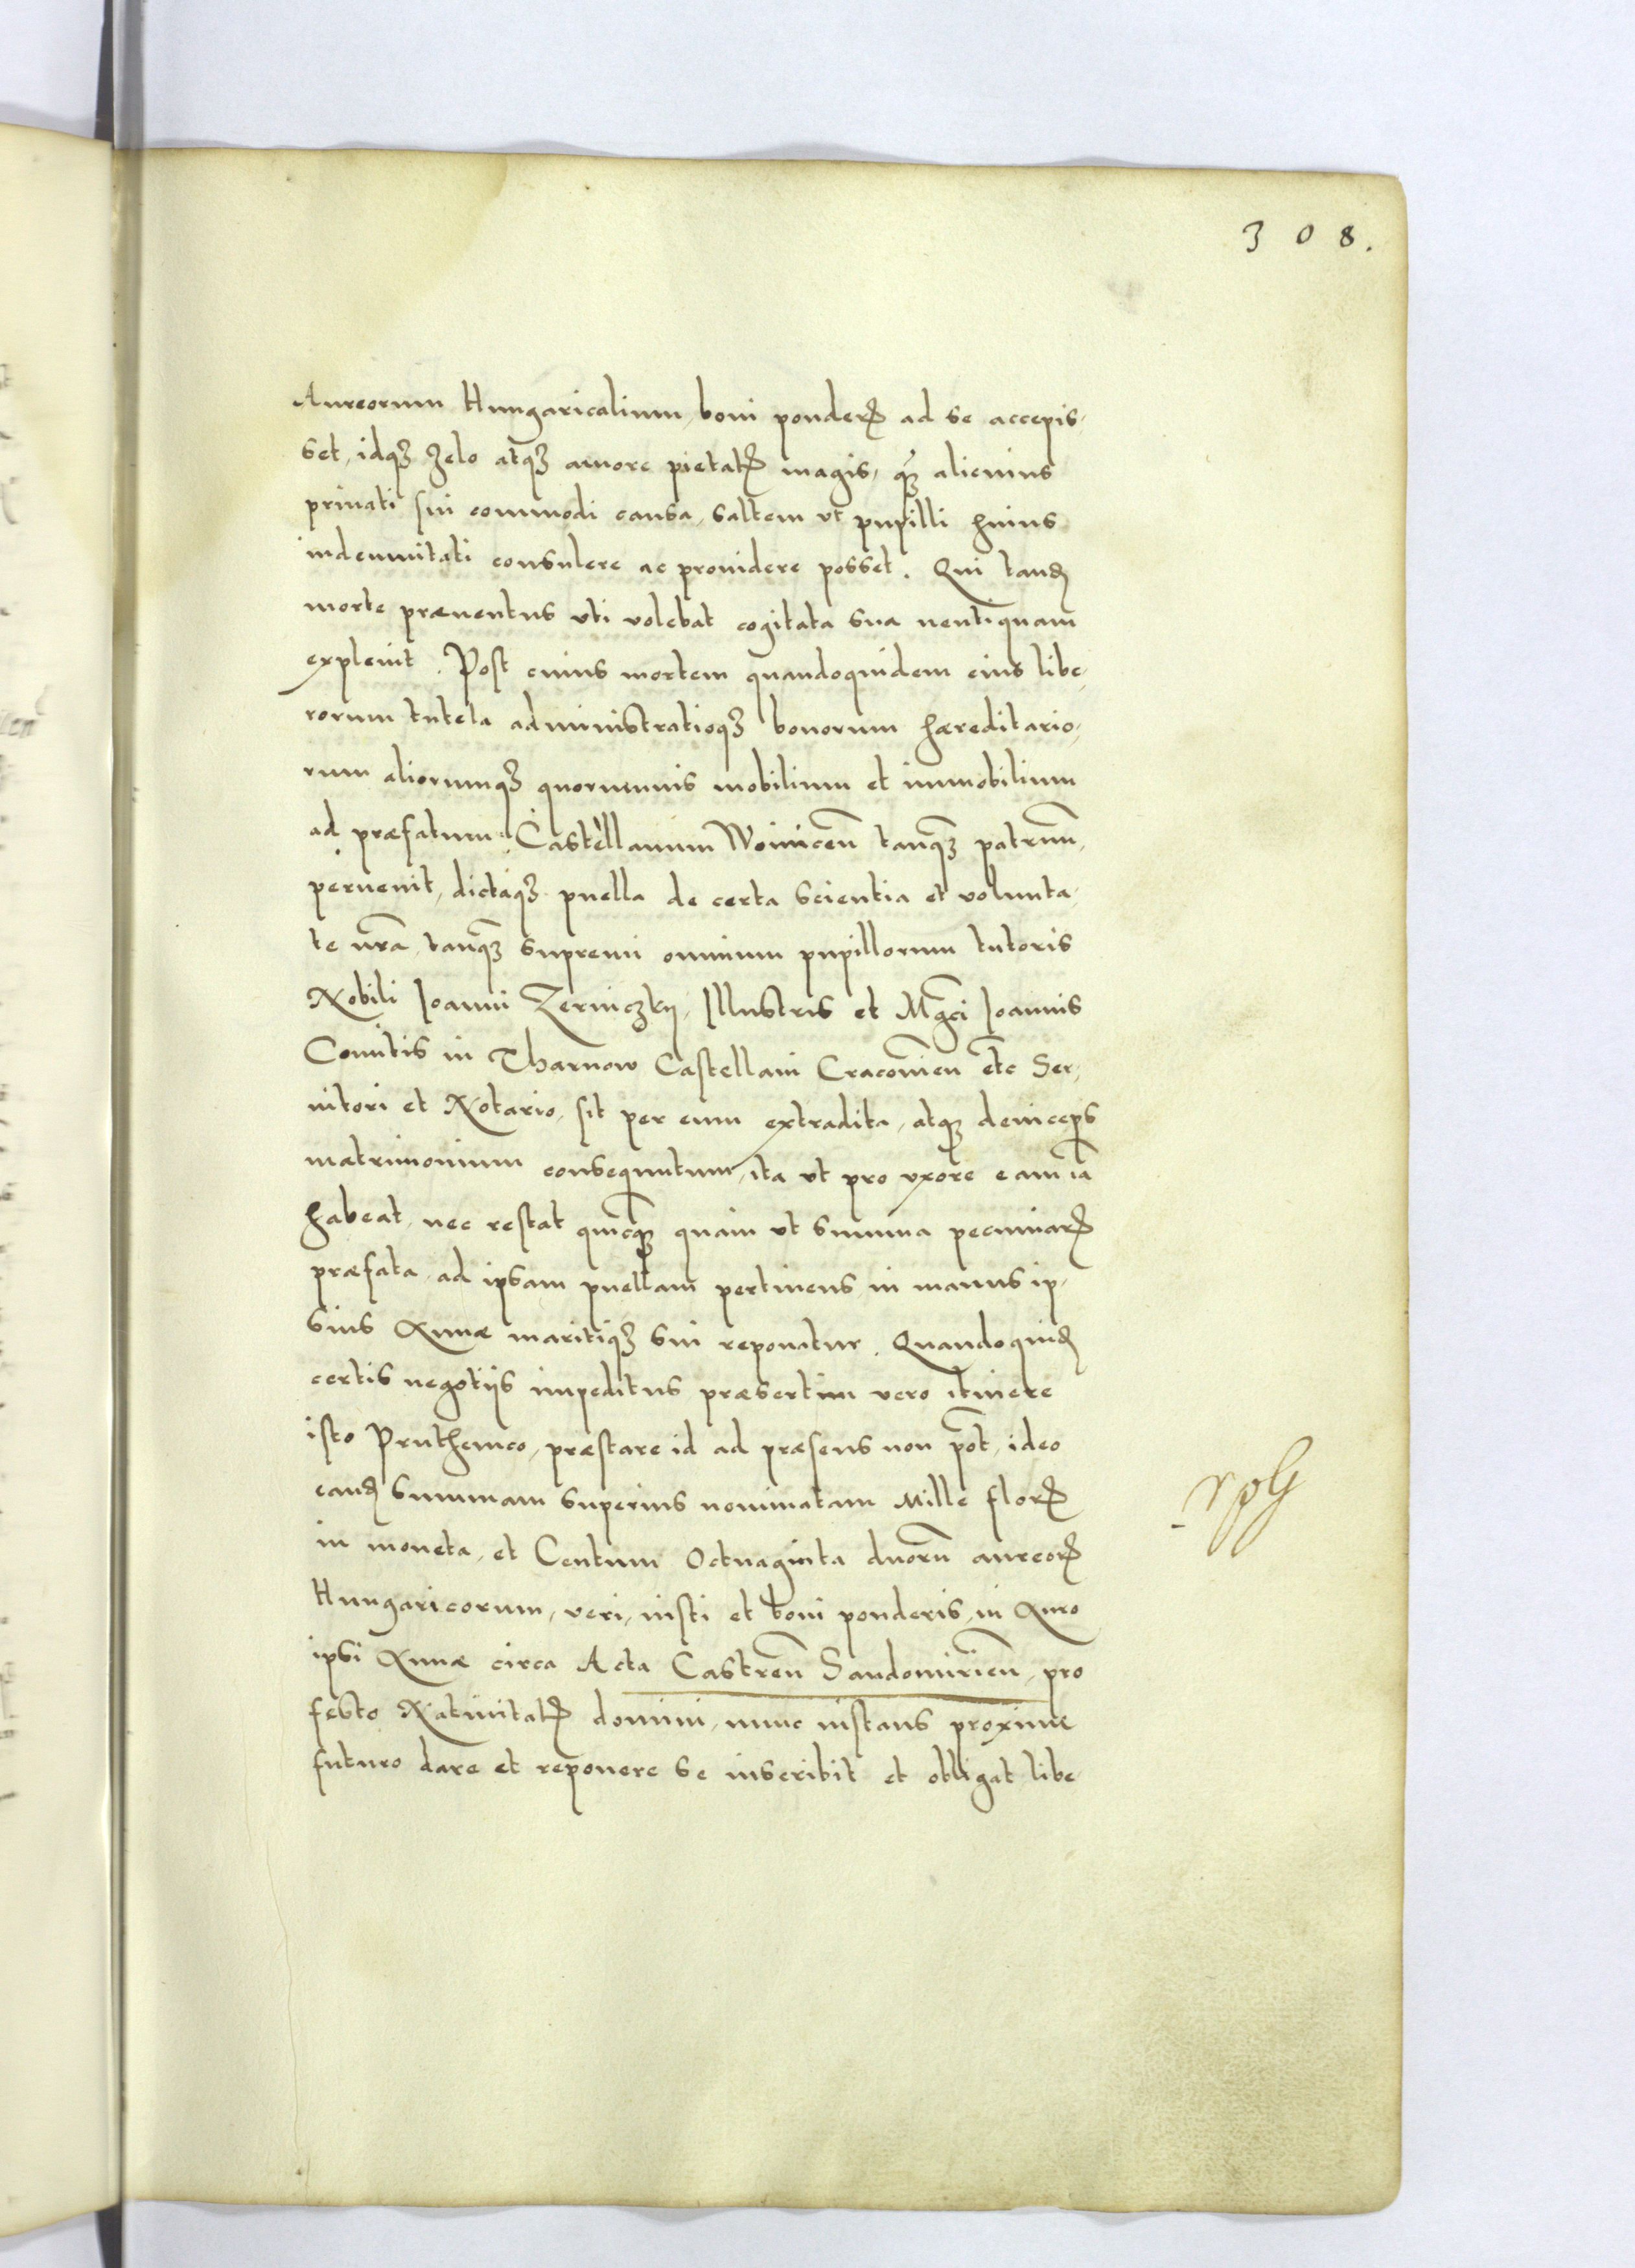 308.
Aureorum Hungaricalium, boni ponderꝭ ad se accepis,
set, idqꝫ zelo atqꝫ amore pietatꝭ magis, qꝫ̃ alicuius
priuati sui commodi causa, saltem vt pupilli huius
indemnitati consulere ac prouidere posset. Qui tandẽ
morte præuentus vti volebat cogitata sua neutiquam
expleuit. Post cuius mortem quandoquidem eius libe,
rorum tutela administratioqꝫ bonorum hæreditario,
rum aliorumqꝫ quorumuis mobilium et immobilium
ad præfatum Castellanum Woiniceñ tanqꝫ̃ patruũ,
peruenit, dictaqꝫ puella de certa scientia et volunta,
te nr̃a, tanqꝫ̃ supremi omnium pupillorum tutoris
Nobili Joanni Zerniczkij, Illustris et Mgc̃i Joannis
Comitis in Tharnow Castellani Cracouieñ etc̃ Ser,
uitori et Notario, sit per eum extradita, atqꝫ deinceps
matrimonium consequutum, ita vt pro vxore eam iã
habeat, nec restat quicqꝫ̃ quam vt summa pecuniarꝭ
præfata, ad ipsam puellam pertinens in manus ip,
sius Annæ maritiqꝫ sui reponatur. Quandoquidẽ
certis negotijs impeditus præsertim vero itinere
isto Pruthenico, præstare id ad præsens non põt, ideo
eandẽ summam superius nominatam Mille florꝭ
in moneta, et Centum Octuaginta duorũ aureorꝭ
Hungaricorum, veri, iusti et boni ponderis, in Auro
ipsi Annæ circa Acta Castreñ Sandomirieñ, pro
festo Natiuitatꝭ domini, nunc instans proxime
futuro dare et reponere se inscribit et obligat libe,